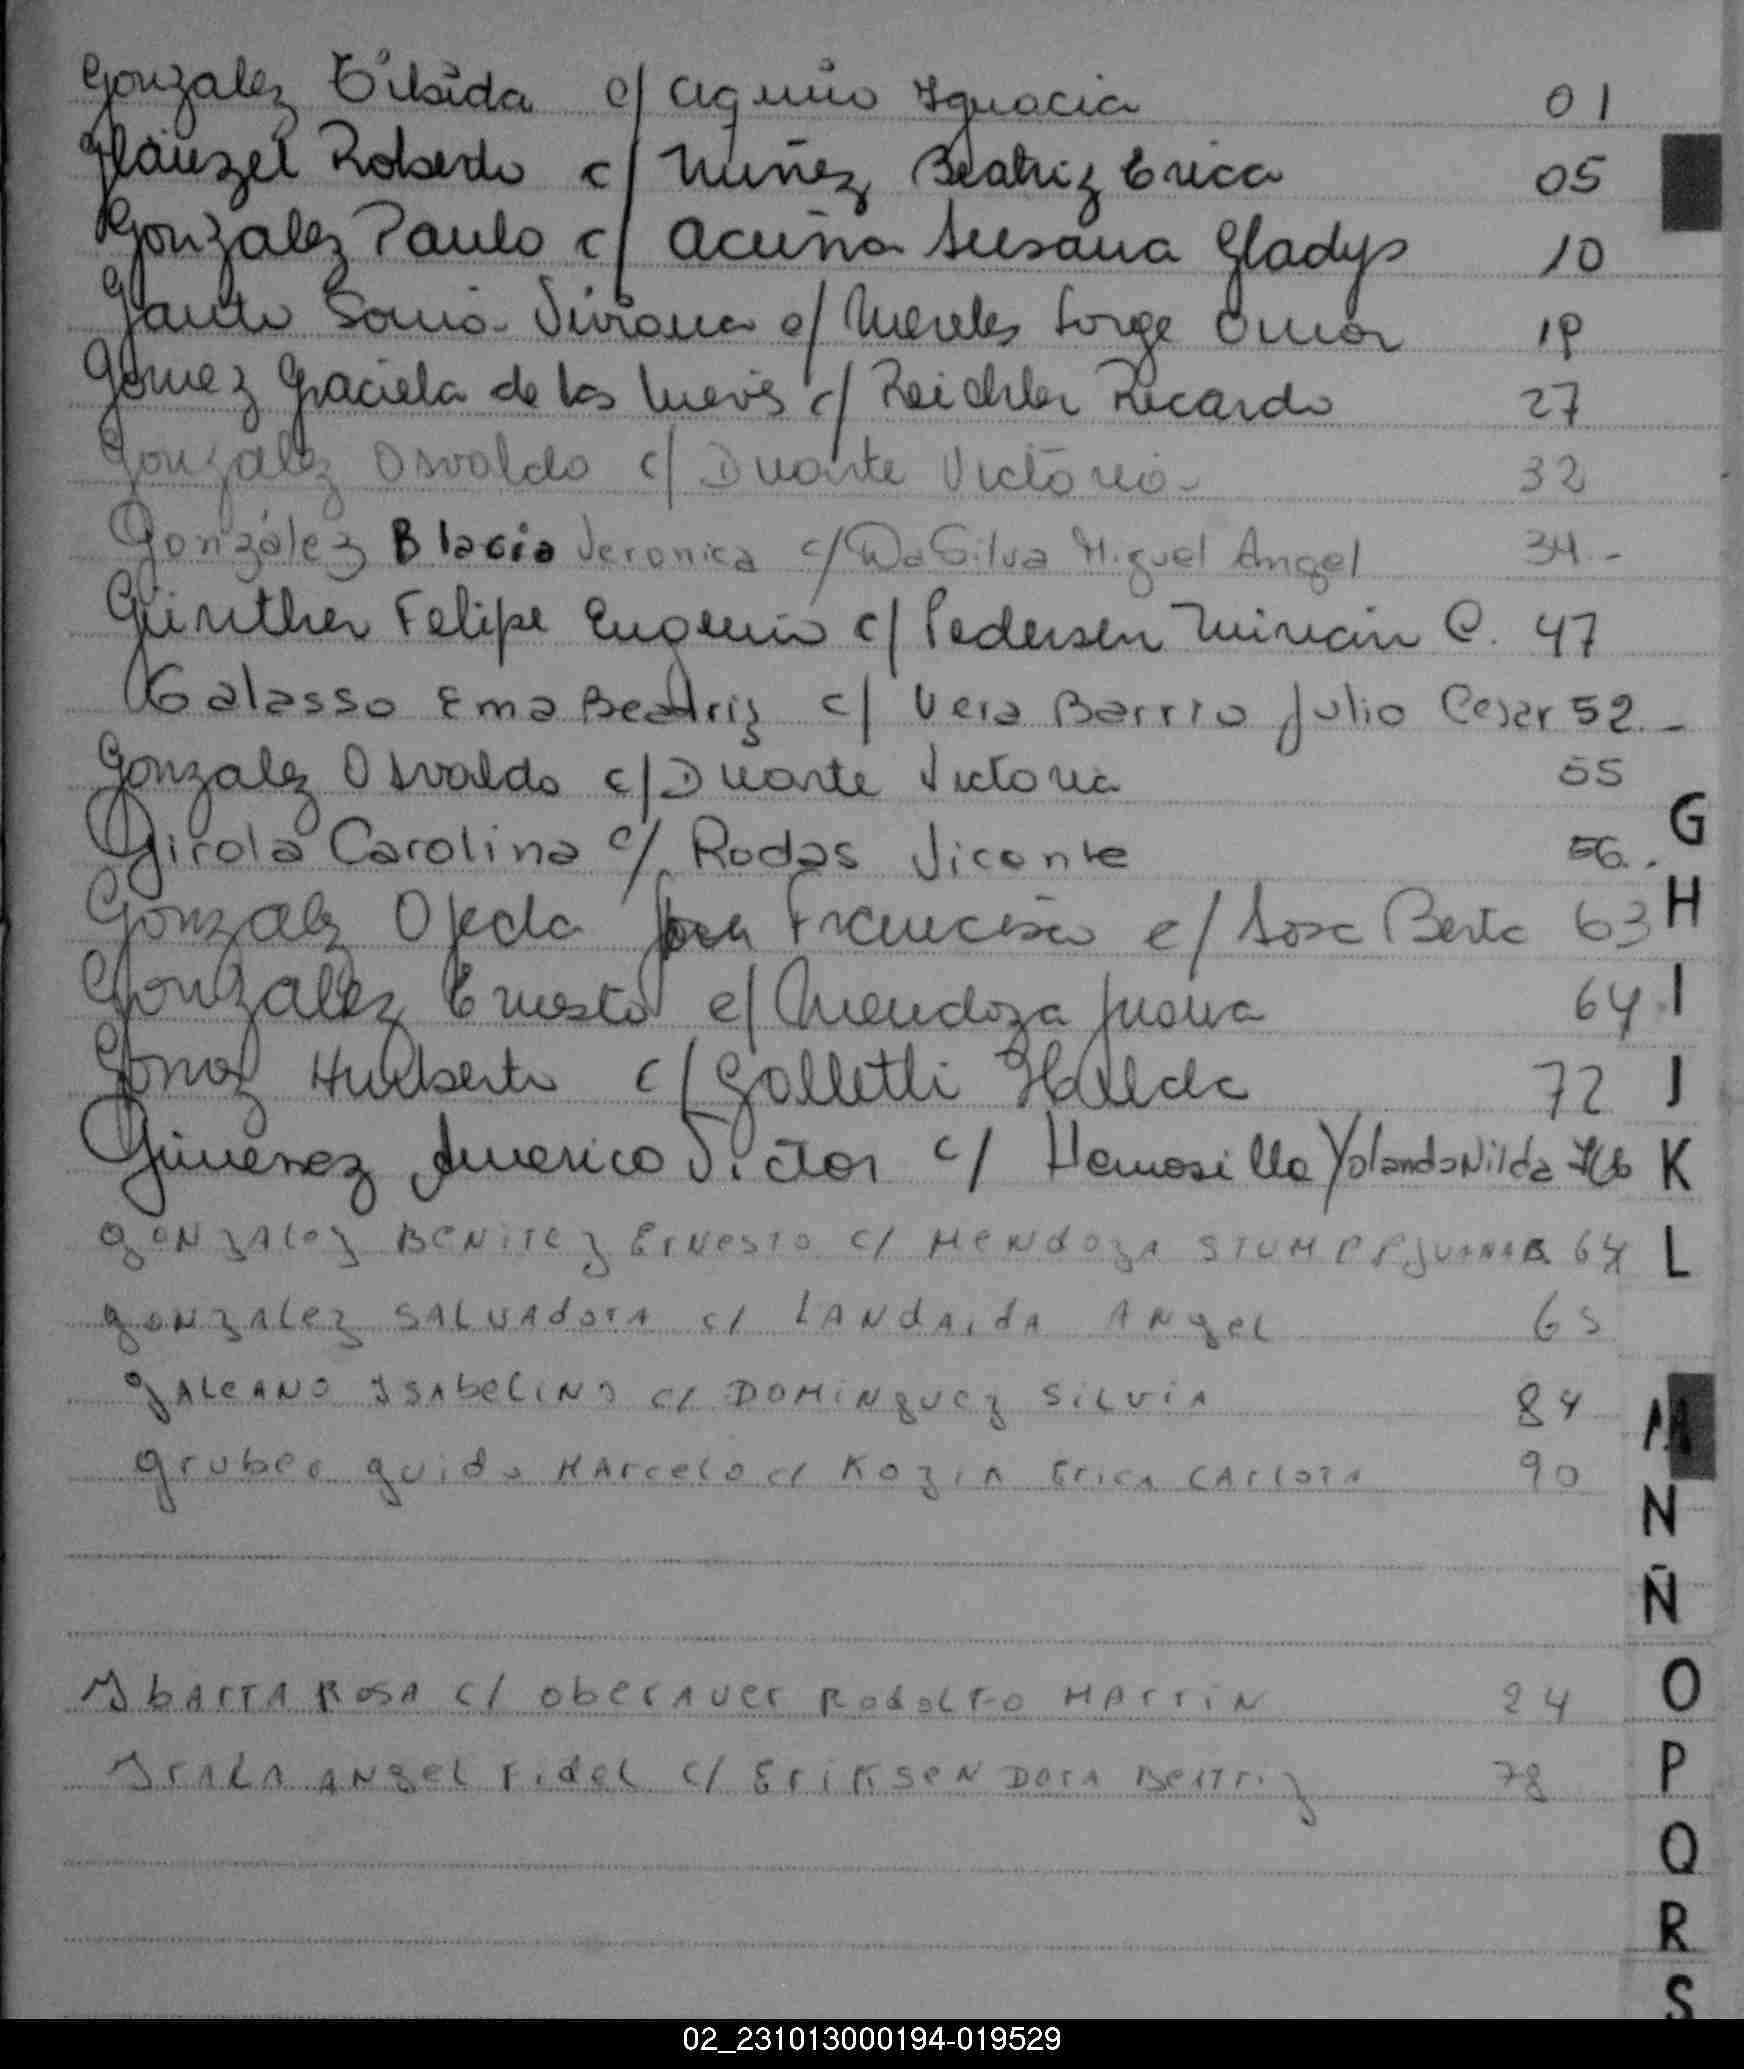 Gonzalez Eilsida c/ Aquino Ignacia 01
Gläuzel Roberto c/ Nuñez Beatriz Erica 05
Gonzalez Paulo c/ Acuña Susana Gladys 10
Sonia Viviana c/ Mereles Jorge Omar 19
Gomez Graciela de las Nieves c/ Reichler Ricardo 27
Gonzalez Osvaldo c/ Duarte Victoria - 32
González Blasia Veronica c/ Da Silva Miguel Angel 34 -
Günther Felipe Eugenio c/ Pedersen Mirian C. 47
Galasso Ema Beatriz c/ Vera Barrio Julio Cesar 52 -
Gonzalez Osvaldo c/ Duarte Victoria 55
Girola Carolina c/ Rodas Vicente 56.
G
Gonzalez Ojeda Francisco c/ Sosa Berta 63
H
Gonzalez Ernesto c/ Mendoza Juana 64
I
Gomez Humberto c/ Golletti Hilda 72
J
Gimenez Americo Victor c/ Hermosilla Yolanda Nilda
K
Gonzalez Benitez Ernesto c/ Mendoza Stumpp Juana B. 64
L
Gonzalez Salvadora c/ Landaida Angel 65
Galeano Isabelino c/ Dominguez Silvia 84
M
Gruber Guido Marcelo c/ Kozia Erica Carlota 90
N
Ñ
Ibarra Rosa c/ Oberauer Rodolfo Martin 24
O
Irala Angel Fidel c/ Eriksen Dora Beatriz 78
P
Q
R
S
02_231013000194-019529